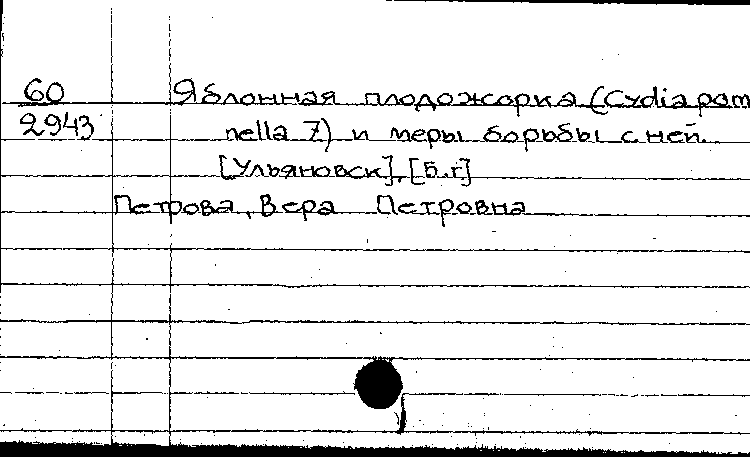 60 Яблонная плодожорка (Cydia pom
2943 nella Z) и меры борьбы с ней.
[Ульяновск], [Б.г]
Петрова, Вера Петровна